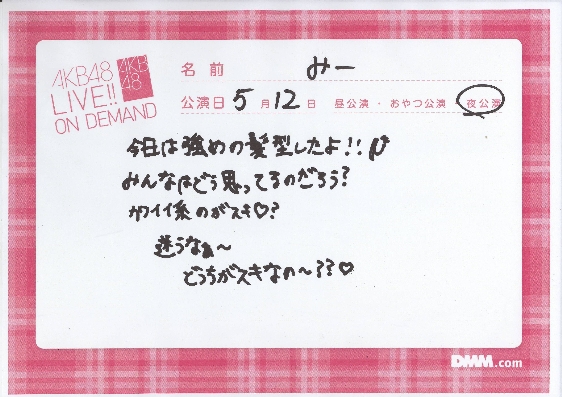 AKB48
LIVE!!
ON DEMAND
AKB
48
名前 みー
公演日 5月12日 昼公演・おやつ公演 夜公演
今日は強めの髪型したよ!!
みんなはどう思ってるのだろう?
カワイイ系のがスキ♡?
迷うなぁ〜
どっちがスキなの〜??♡
DMM.com